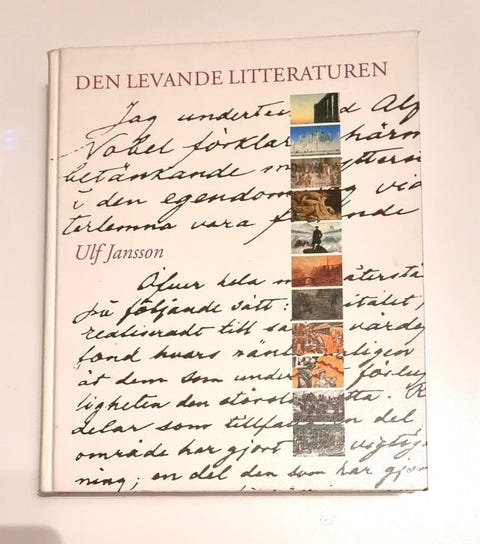 DEN LEVANDE LITTERATUREN
Jag underte d Alf
Nobel förklar härm
betänkande m ttern
i den egendom g vid
terlemna vara f nde
Ulf Jansson
Öfver hela återstå
på följande sätt: itålet,
realiseradt till sä värde
fond hvars ränt ligen
åt dem som unde förlu
ligheten den störst tta. R
delar som tillfa en del
område har gjort vigtig
ning; en del den som har gjor